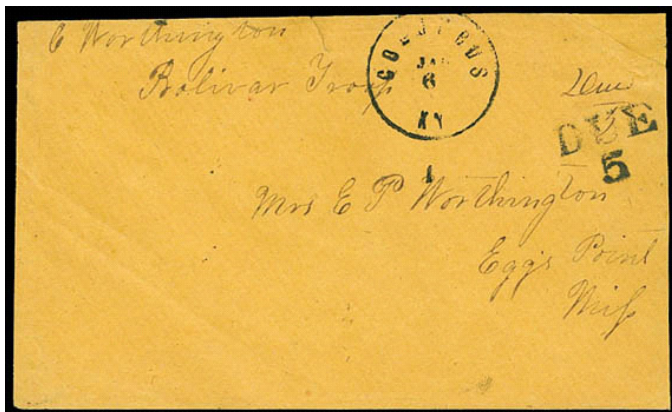 C Worthington
Bolivar Troop
COLUMBUS
JAN
6
KY
Due
DUE
5
Mrs E P Worthington
Eggs Point
Miss